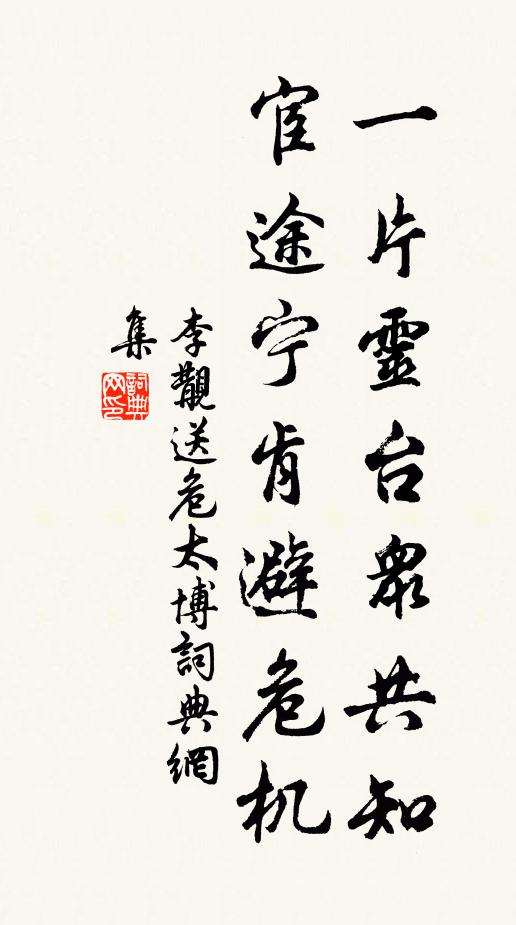 一片靈台衆共知
宦途宁肯避危机
李覯送危太博詞典網
集
詞典
网印